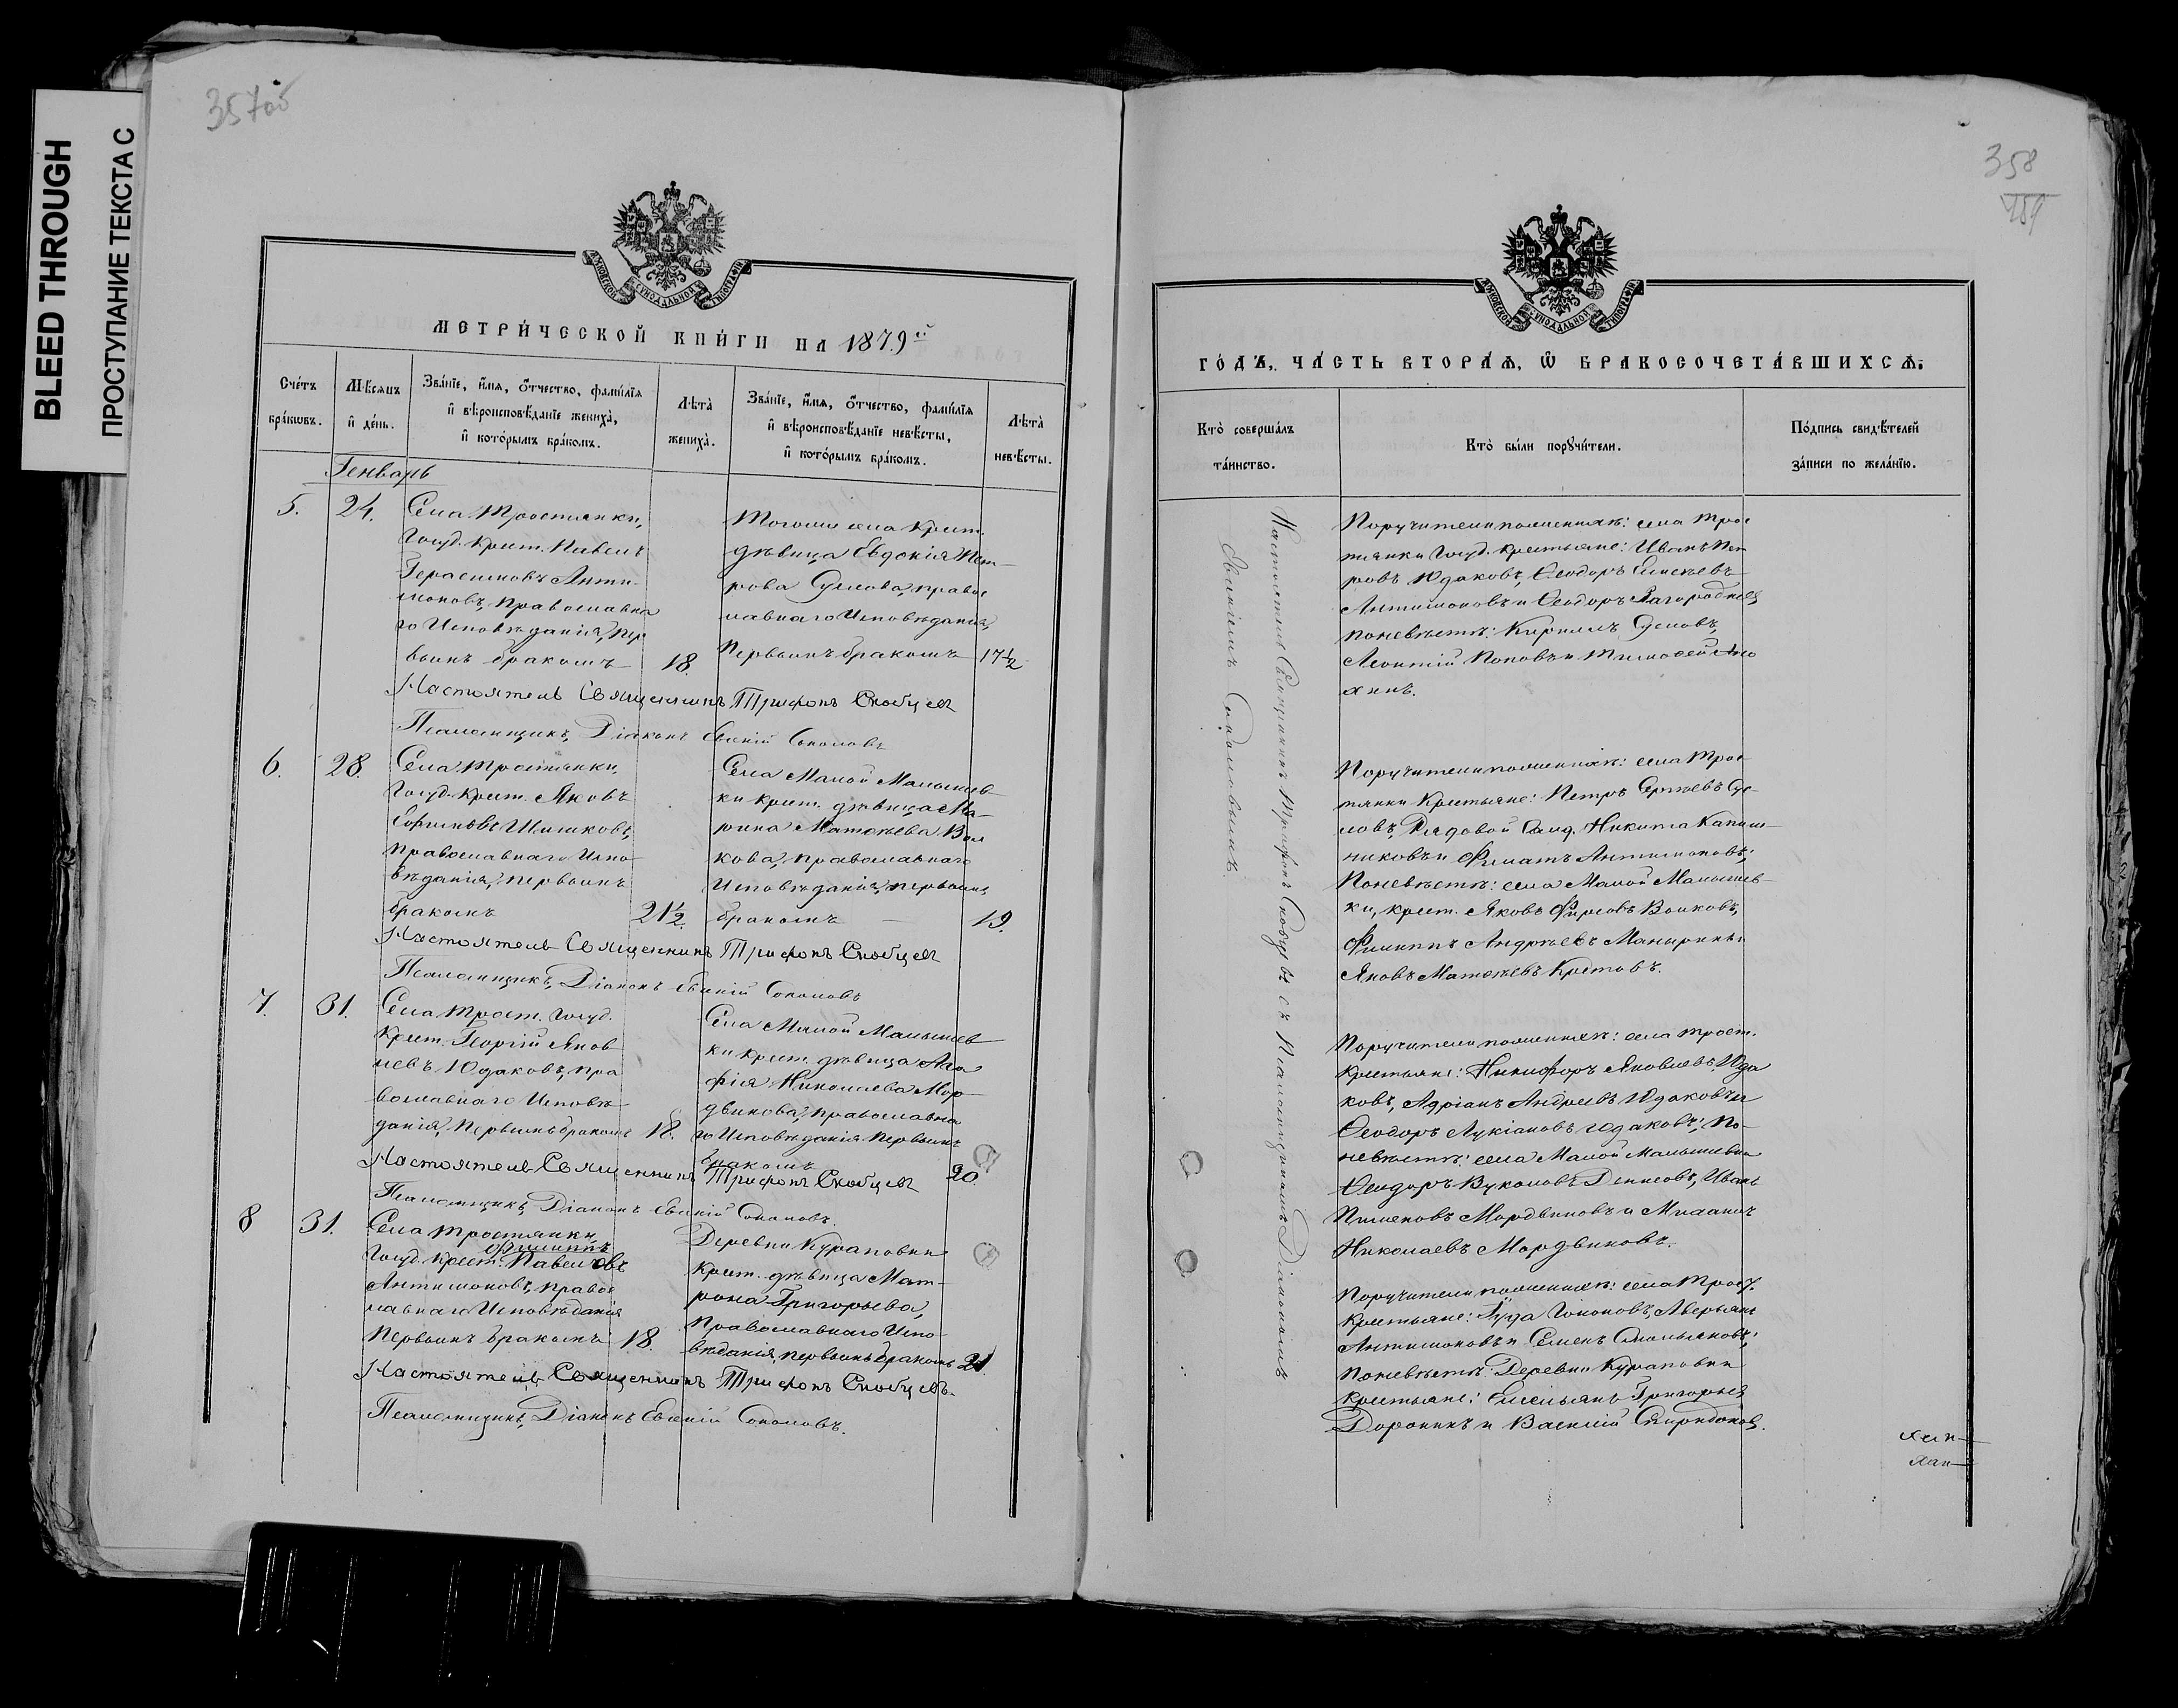 BLEED THROUGH
ПРОСТУПАНИЕ ТЕКСТА С
357об
МЕТРИЧЕСКОЙ КНИГИ НА 1879й
Счетъ браковъ.
Мѣсяцъ и день.
Званіе, имя, отчество, фамилія и вѣроисповѣданіе жениха, и которымъ бракомъ.
Лѣта жениха.
Званіе, имя, отчество, фамилія и вѣроисповѣданіе невѣсты, и которымъ бракомъ.
Лѣта невѣсты.
Генварь
5.
24.
Села Тростянки,
Госуд. Крест. Павелъ
Герасимовъ Анти-
моновъ, православна
го Исповѣданія, пер
вымъ бракомъ
18.
Тогоже села Крест.
дѣвица Евдокія Пет-
рова Суслова, правос
лавнаго Исповѣданія,
первымъ бракомъ
17½
Настоятель Священникъ Трифонъ Скобцевъ
Псаломщикъ, Діаконъ Евгеній Соколовъ
6.
28.
Села Тростянки,
Госуд. Крест. Яковъ
Ефимовъ Шишковъ,
православнаго Испо
вѣданія, первымъ
бракомъ
21½.
Села Малой Малышев
ки крест. дѣвица Ма-
рина Матвѣева Вол
кова, православнаго
Исповѣданія, первымъ
бракомъ
19.
Настоятель Священникъ Трифонъ Скобцевъ
Псаломщикъ, Діаконъ Евгеній Соколовъ
7.
31.
Села Трост. Госуд.
Крест. Георгій Яков
левъ Юдаковъ, пра
вославнаго Исповѣ
данія, первымъ бракомъ
18.
Села Малой Малышев
ки крест. дѣвица Ага
фія Николаева Мор-
двинова, православна
го Исповѣданія первымъ
бракомъ
20.
Настоятель Священникъ Трифонъ Скобцевъ
Псаломщикъ, Діаконъ Евгеній Соколовъ.
8
31.
Села Тростянки,
Филиппъ
Госуд. Крест. Павеловъ
Антимоновъ, правос
лавнаго Исповѣданія
первымъ бракомъ
18.
Деревни Кураповки
Крест. дѣвица Мат-
рона Григорьева,
православнаго Испо-
вѣданія, первымъ бракомъ
21.
Настоятель Священникъ Трифонъ Скобцевъ.
Псаломщикъ, Діаконъ Евгеній Соколовъ.
358
ГОДЪ, ЧАСТЬ ВТОРАЯ, Ѡ БРАКОСОЧЕТАВШИХСЯ.
Кто совершалъ таинство.
Кто были поручители.
Подпись свидѣтелей записи по желанію.
Настоятель Священникъ Трифонъ Скобцевъ съ Псаломщикомъ Діакономъ
Евгеніемъ Соколовымъ.
Поручители по женихѣ: села Трос
тянки Госуд. крестьяне: Иванъ Пет
ровъ Юдаковъ, Ѳеодоръ Елисѣевъ
Антимоновъ и Ѳеодоръ Загороднев,
по невѣстѣ: Кириллъ Сусловъ,
Леонтій Поповъ и Тимоѳей Але
хинъ.
Поручители по женихѣ: села Трос-
тянки Крестьяне: Петръ Сергѣевъ Сус-
ловъ, Рядовой Солд. Никита Капиш-
никовъ и Филатъ Антимоновъ;
По невѣстѣ: села Малой Малышев-
ки, крест. Яковъ Фирсовъ Волковъ,
Филиппъ Андрѣевъ Маныринъ и
Яковъ Матвѣевъ Кротовъ.
Поручители по женихѣ: села Трост.
Крестьяне: Никифоръ Яковлевъ Юда
ковъ, Адріанъ Андреевъ Юдаковъ и
Ѳеодоръ Лукіановъ Юдаковъ; По-
невѣстѣ: села Малой Малышевки
Ѳеодоръ Вуколовъ Денисовъ, Иванъ
Пименовъ Мордвиновъ и Михаилъ
Николаевъ Мордвиновъ.
Поручители по женихѣ: села Трост.
Крестьяне: Аверьянъ
Антимоновъ и Семенъ Смольяковъ;
По невѣстѣ: Деревни Кураповки
крестьяне: Емельянъ Григорьев
Доронинъ и Василій Спиридонов.